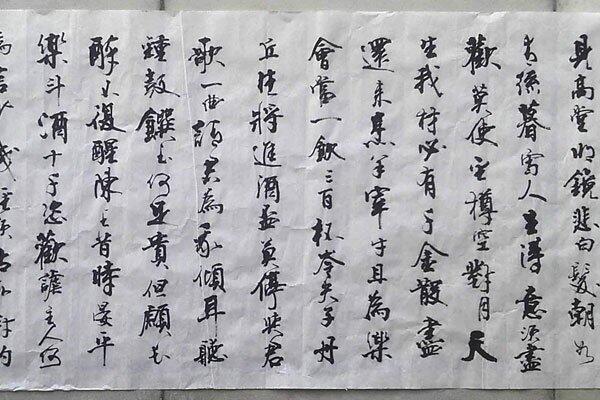 見高堂明鏡悲白髮朝如
青絲暮雪人生得意須盡
歡莫使金樽空對月天
生我材必有千金散盡
還來烹羊宰牛且為樂
會當一飲三百杯岑夫子丹
丘生將進酒盃莫停與君
歌一曲請君為我傾耳聽
鐘鼓饌玉何足貴但願長
醉不復醒陳王昔時宴平
樂斗酒十千恣歡謔主人何
為言少錢徑須沽取對酌